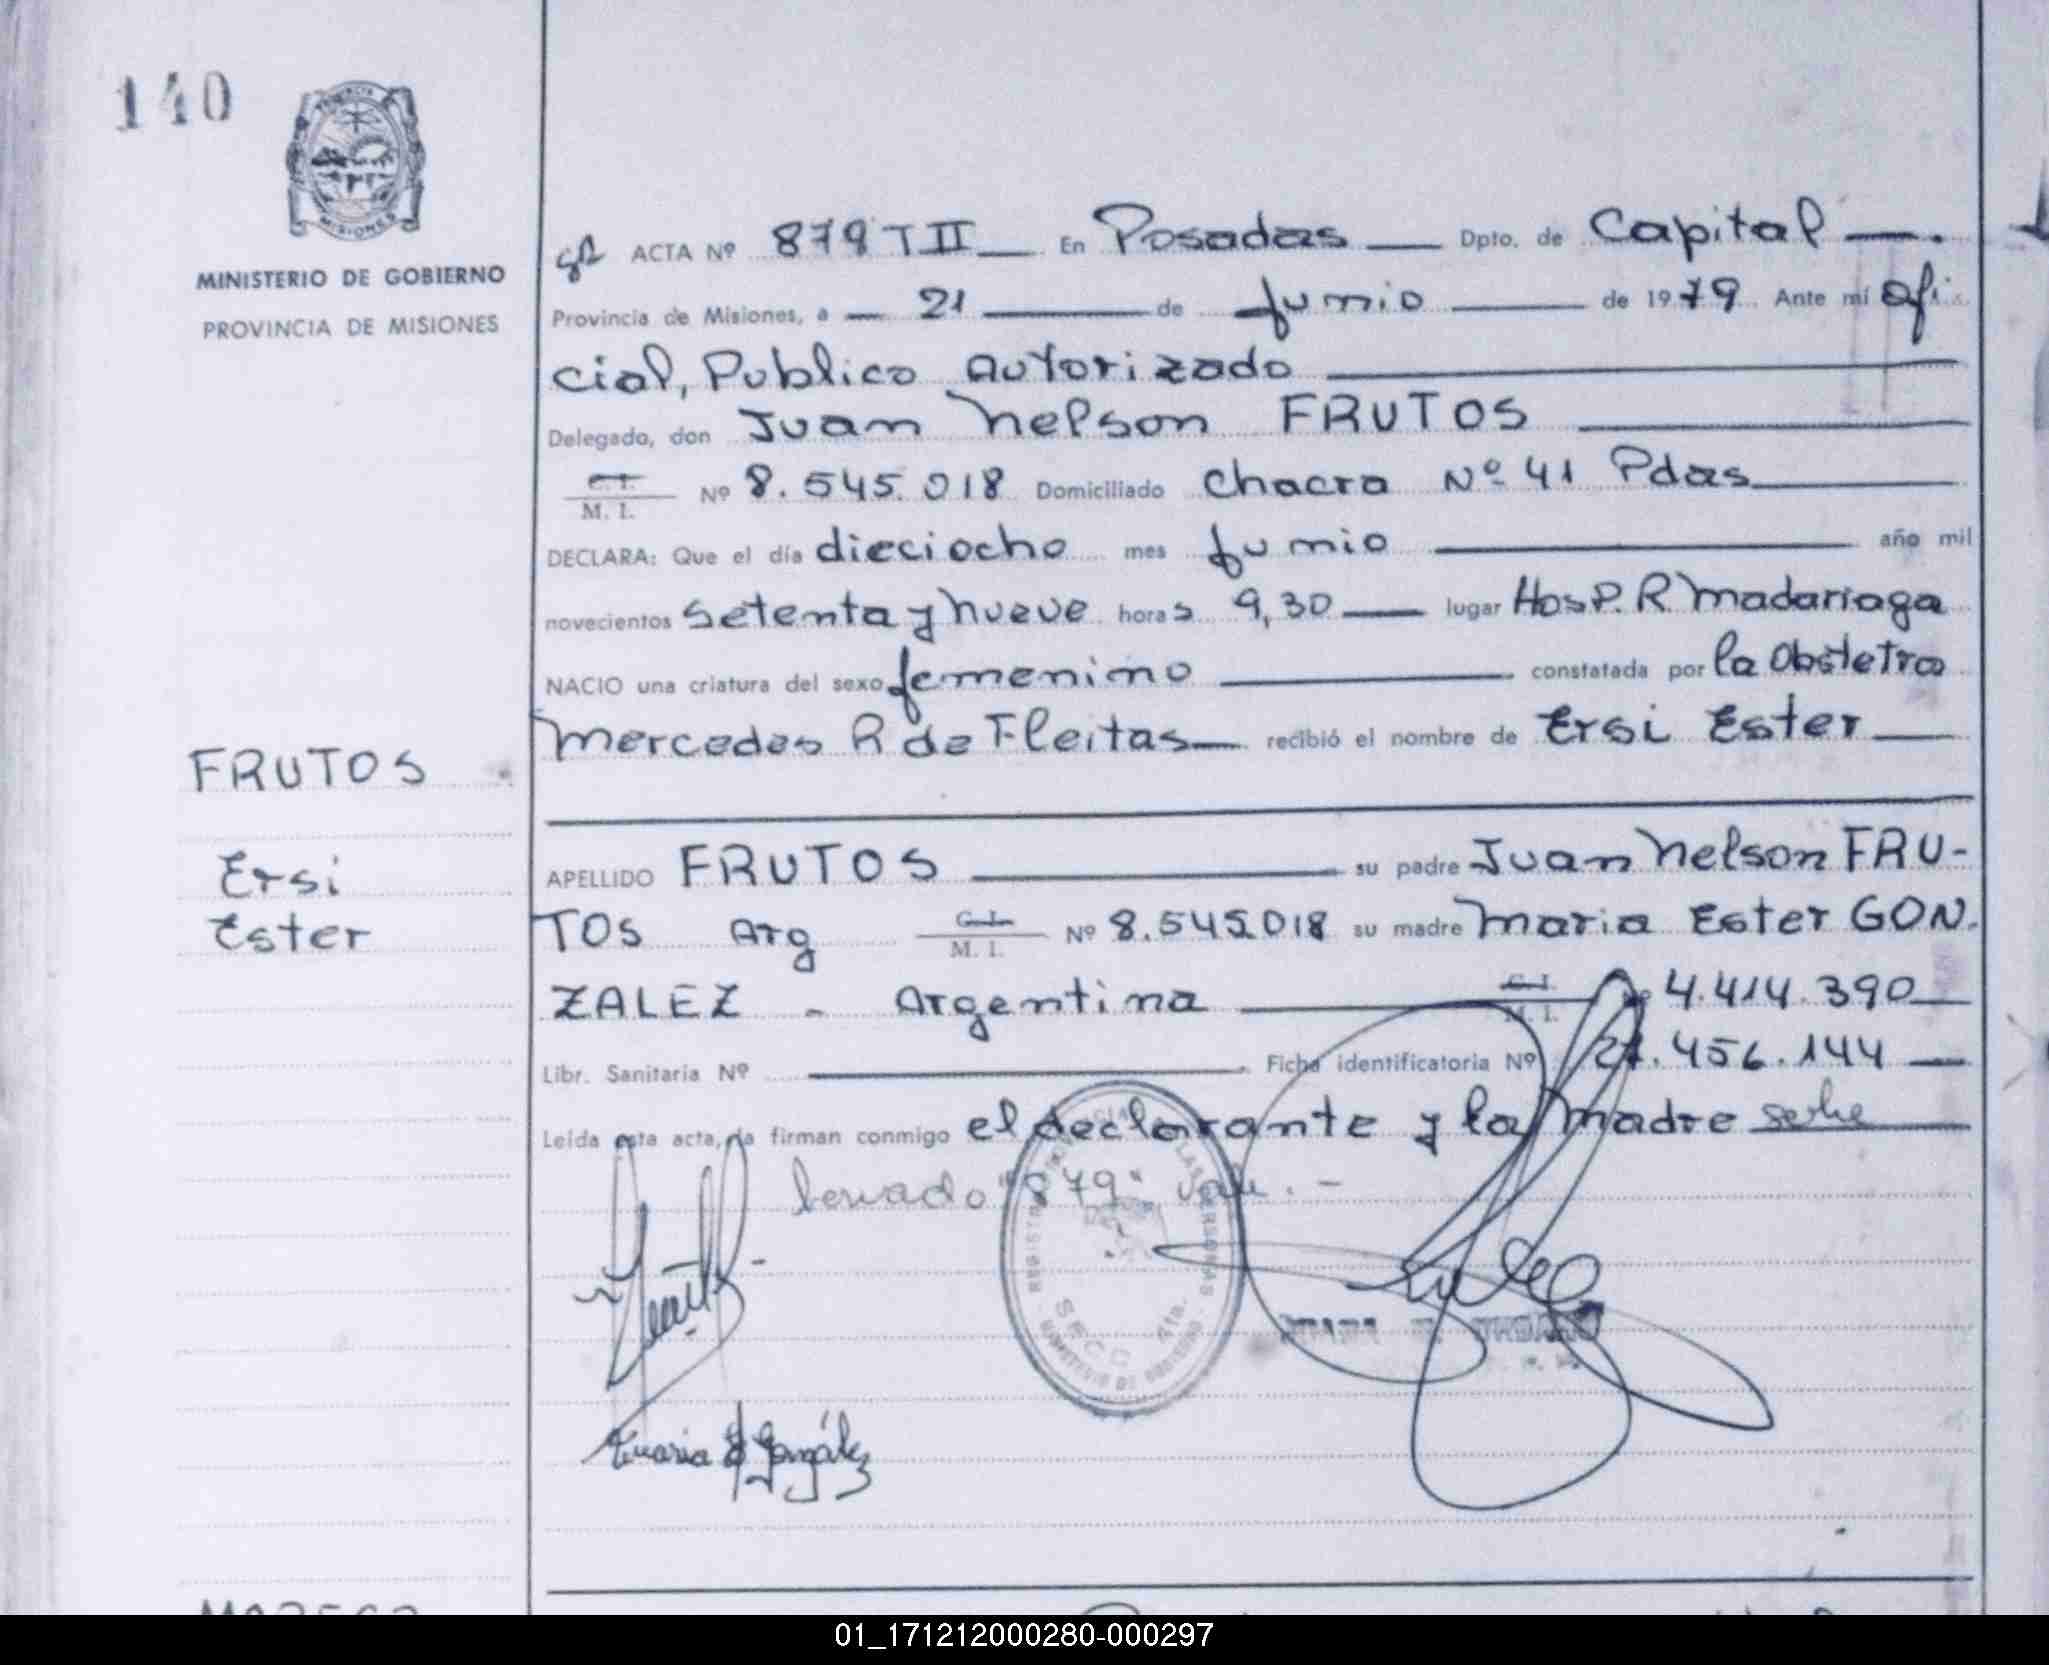 140
PROVINCIA
MISIONES
MINISTERIO DE GOBIERNO
PROVINCIA DE MISIONES
ACTA Nº 879 T II En Posadas Dpto. de Capital
Provincia de Misiones, a 21 de Junio de 1979 Ante mí Ofi
cial, Publico Autorizado
Delegado, don Juan Nelson FRUTOS
C. I.
M. I. Nº 8.545.018 Domiciliado Chacra Nº 41 Pdas
DECLARA: Que el día dieciocho mes Junio año mil
novecientos Setenta y Nueve horas 9,30 lugar Hosp. R. Madariaga
NACIO una criatura del sexo femenino constatada por la Obstetra
Mercedes R de Fleitas recibió el nombre de Ersi Ester
FRUTOS
Ersi
Ester
APELLIDO FRUTOS su padre Juan Nelson FRU-
TOS Arg C. I. M. I. Nº 8.545.018 su madre Maria Ester GON.
ZALEZ - Argentina C. I. M. I. Nº 4.414.390
Libr. Sanitaria Nº Ficha identificatoria Nº 27.456.144
Leída esta acta, la firman conmigo el declarante y la Madre
"879" vale. -
REGISTRO PROVINCIAL DE LAS PERSONAS
SECC 4ta.
MINISTERIO DE GOBIERNO
Maria E González
01_171212000280-000297